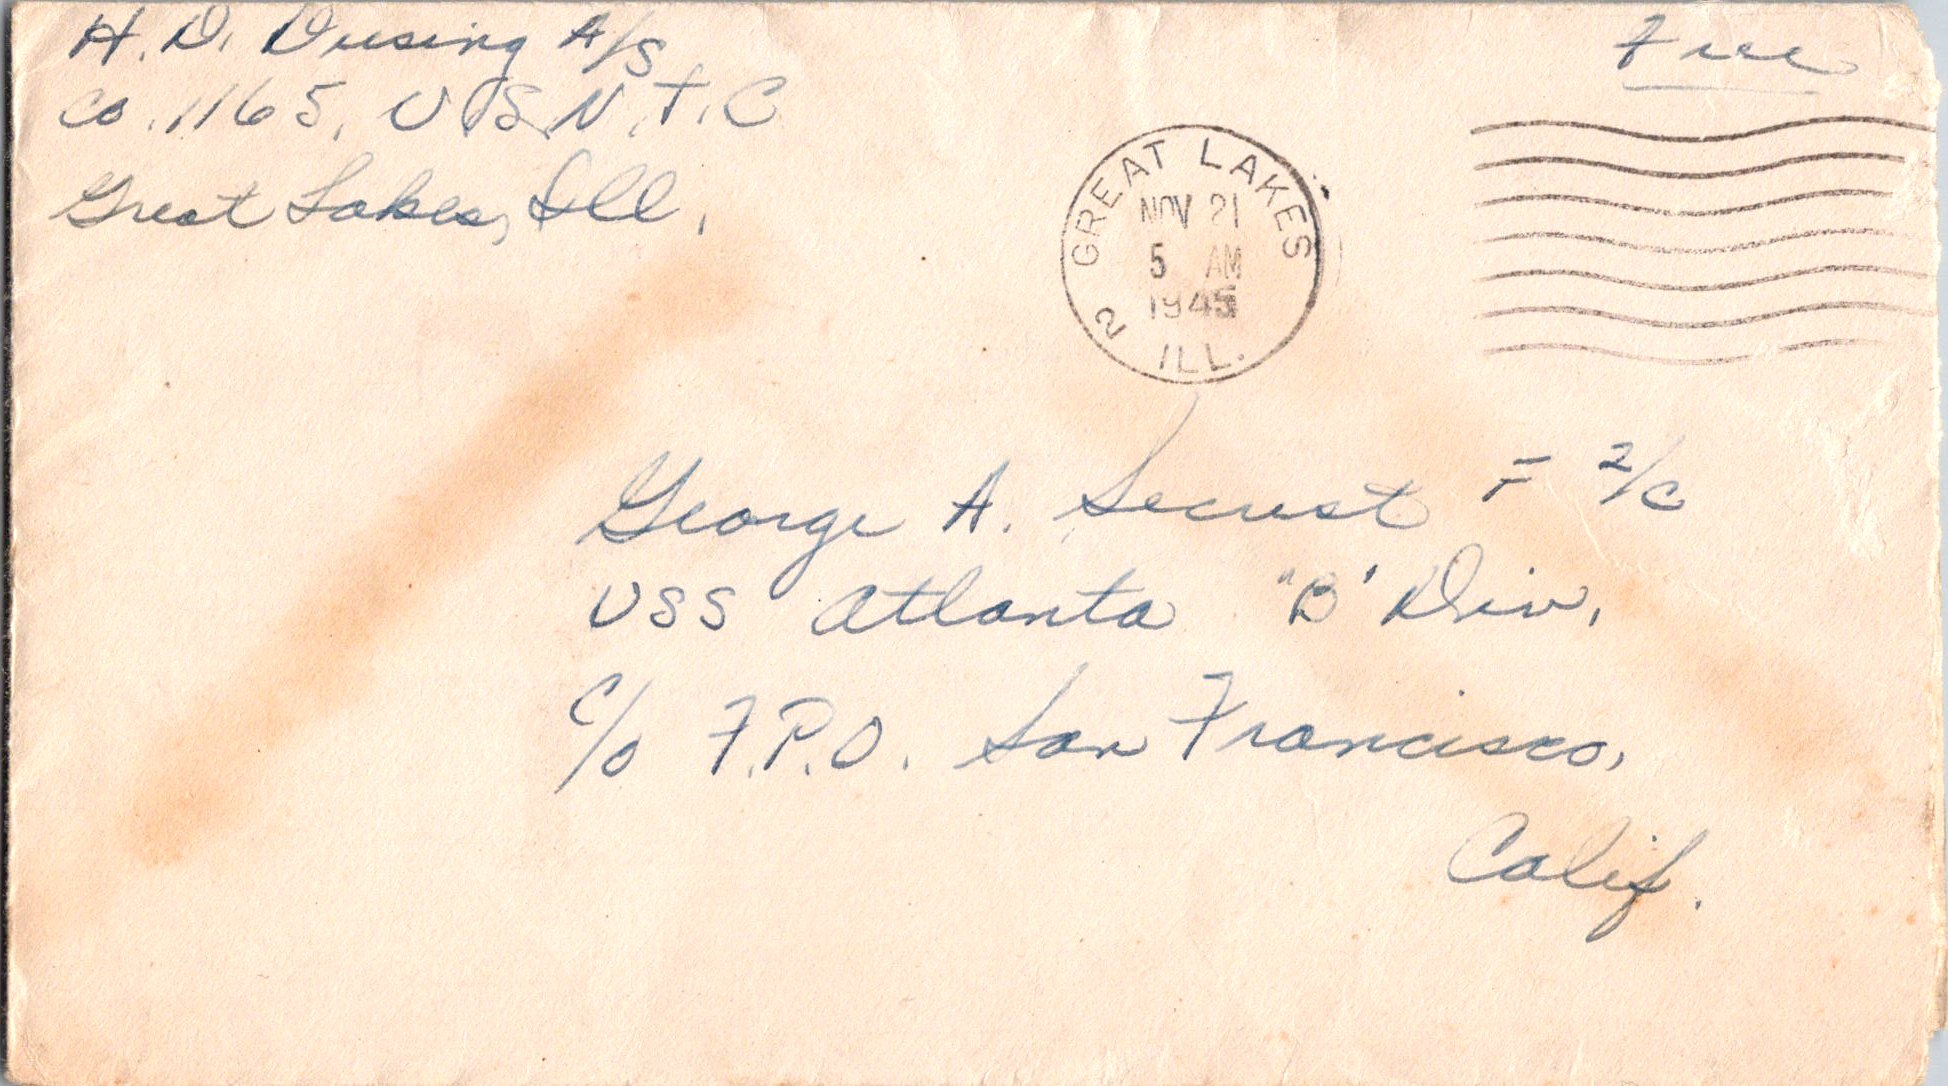 H. D. Dusing A/S
Co. 1165, U.S.N.T.C
Great Lakes, Ill.
Free
GREAT LAKES
NOV 21
5 AM
1945
2 ILL.
George A. Secrest F 2/c
USS Atlanta "B" Div.
c/o F.P.O. San Francisco,
Calif.